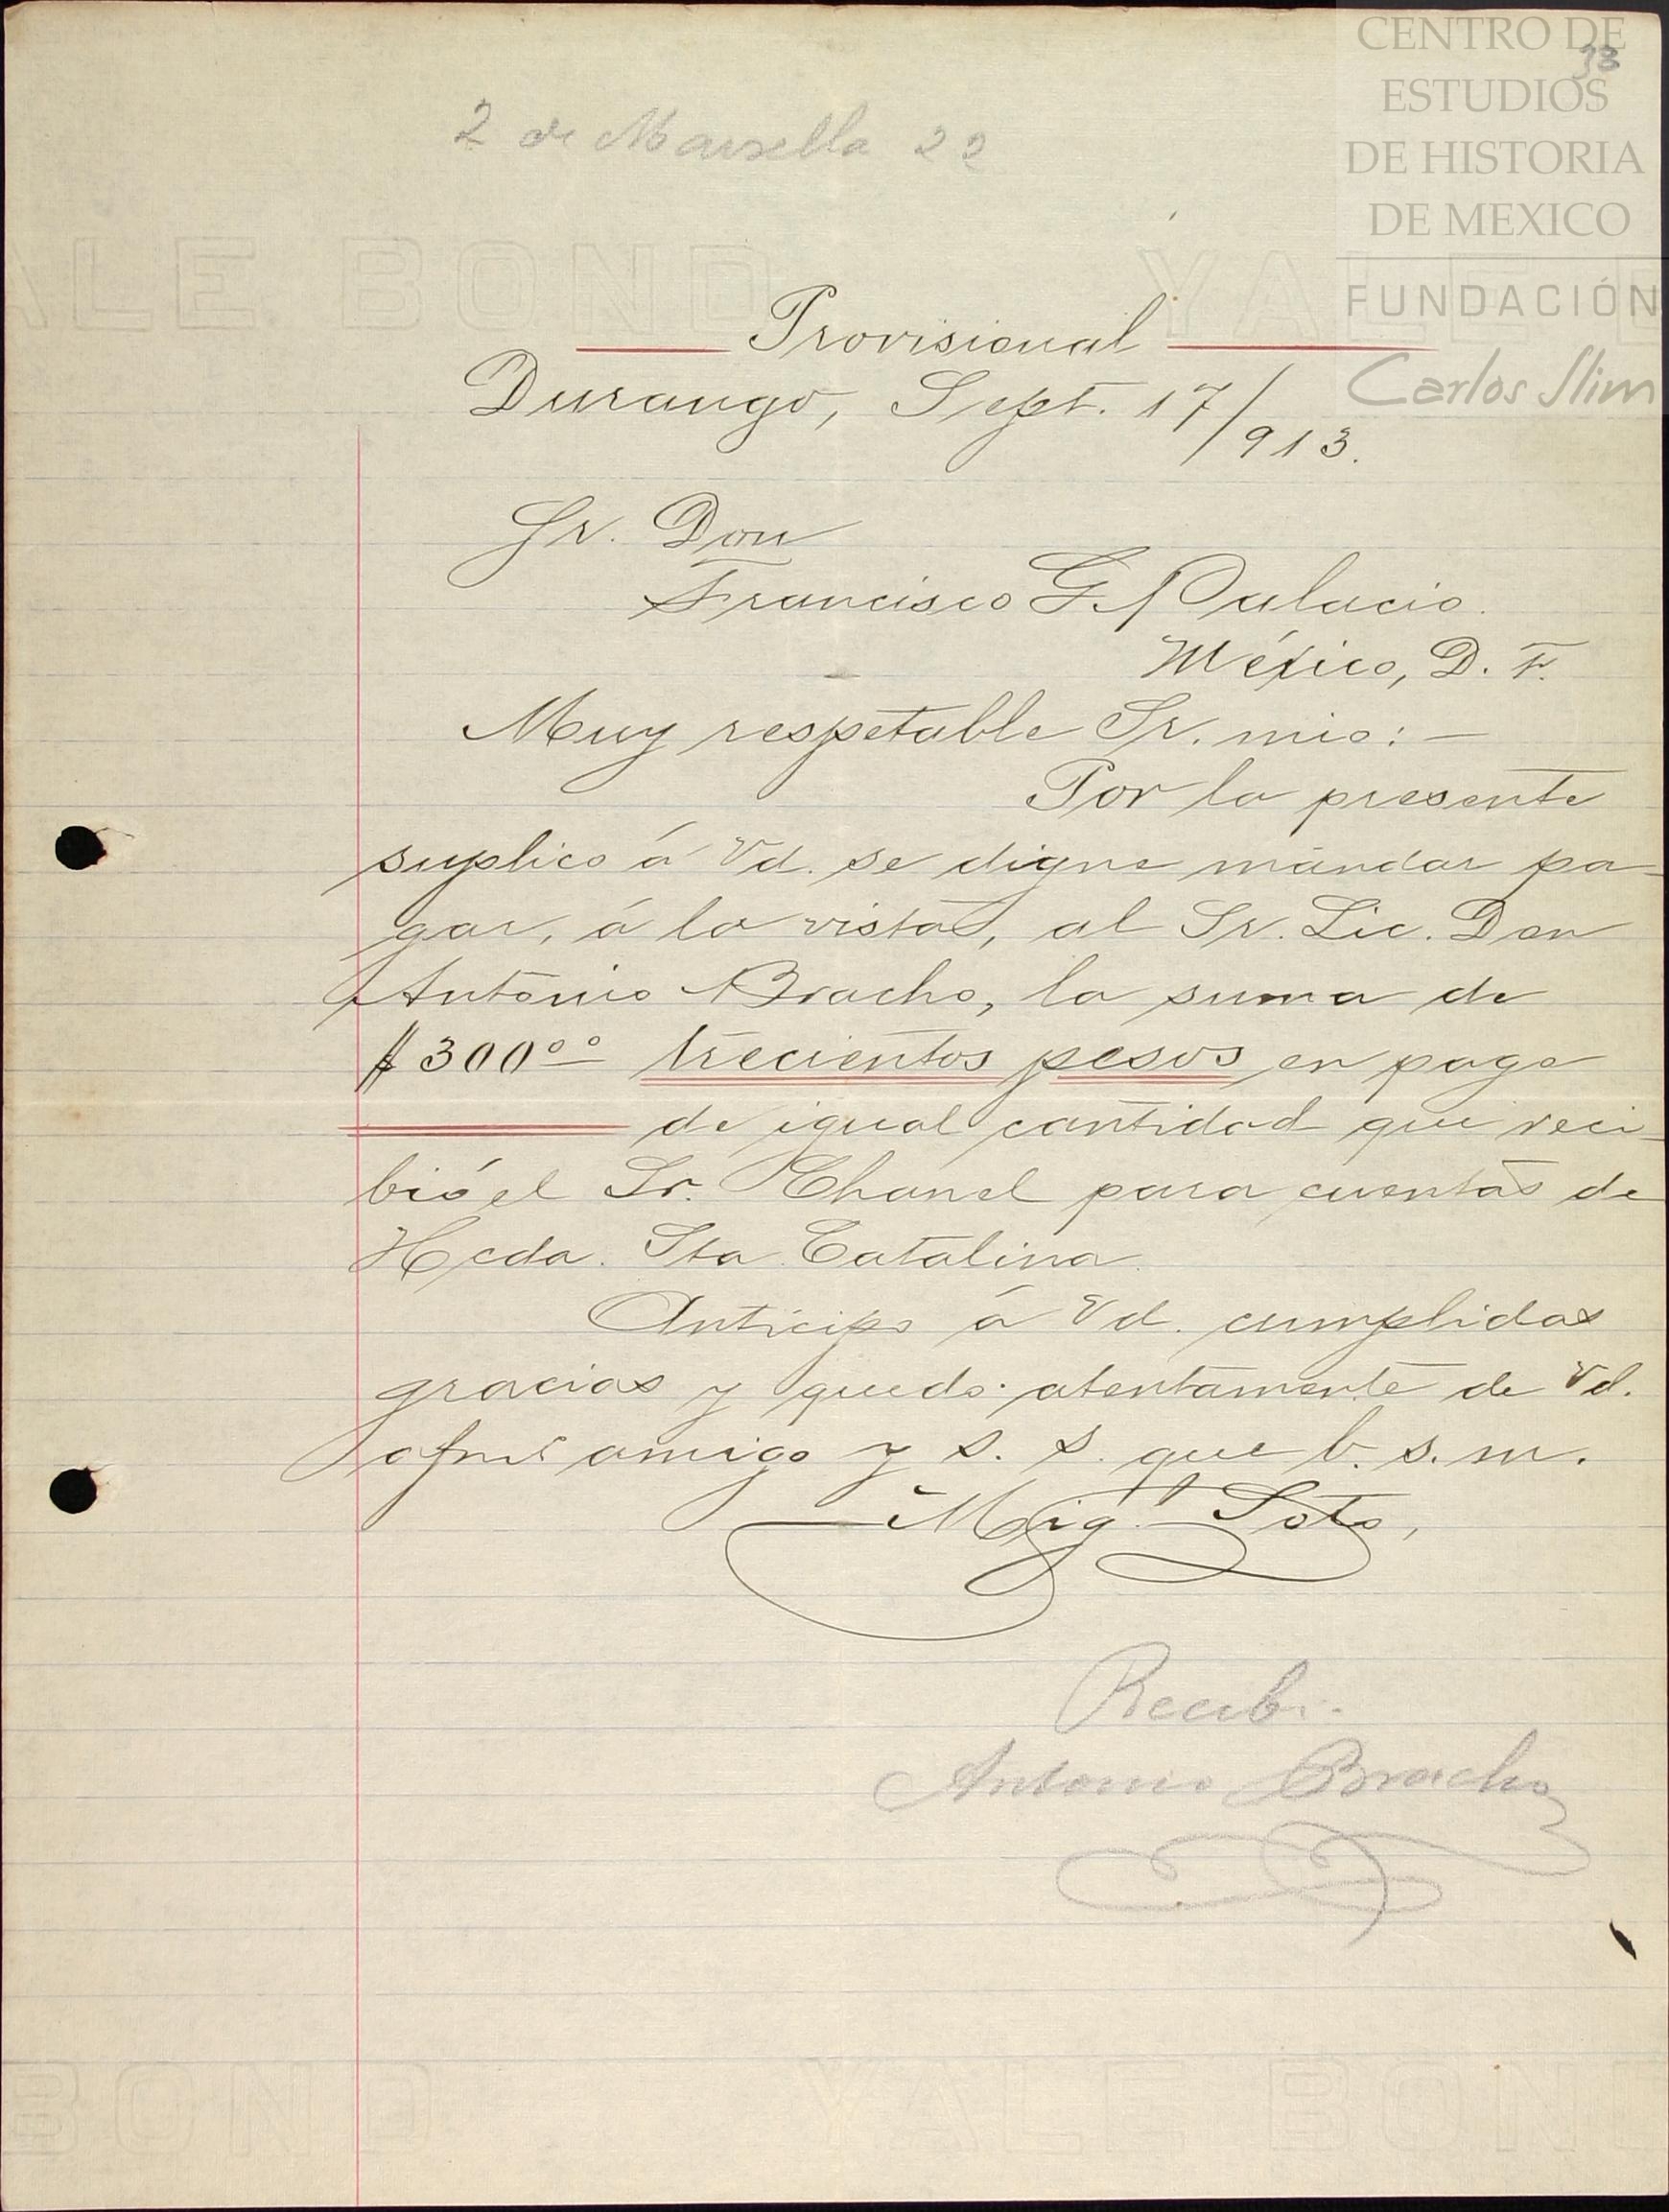 CENTRO DE
ESTUDIOS
DE HISTORIA
DE MEXICO
FUNDACIÓN
Carlos Slim
33
2 de Marsella 22
YALE BOND YALE B
Provisional
Durango, Sept. 17/913.
Sr. Don
Francisco G. Palacio.
México, D. F.
Muy respetable Sr. mio:—
Por la presente
suplico á Vd. se digne mandar pa-
gar, á la vista, al Sr. Lic. Don
Antonio Bracho, la suma de
$300°° trecientos pesos en pago
de igual cantidad que reci-
bió el Sr. Chanel para cuentas de
Hcda. Sta Catalina.
Anticipo á Vd. cumplidas
gracias y quedo atentamente de Vd.
afmo amigo y s. s. que b. s. m.
Mig. Soto,
Recibi.
Antonio Bracho
BOND YALE BOND